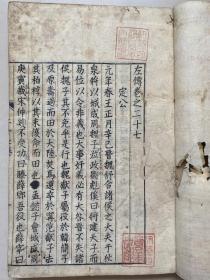 左傳卷之二十七
定公
元年春王正月辛巳晉魏舒合諸侯之大夫于狄
泉將以城成周魏子蒞政衛彪傒曰將建天子而
易位以令非義也大事奸義必有大咎晉不失諸
侯魏子其不免乎是行也魏獻子屬役於韓簡子
及原壽過而田於大陸焚焉還卒於甯范獻子去
其柏椁以其未復命而田也孟懿子會城成周
庚寅栽宋仲幾不受功曰滕薛郳吾役也薛宰曰